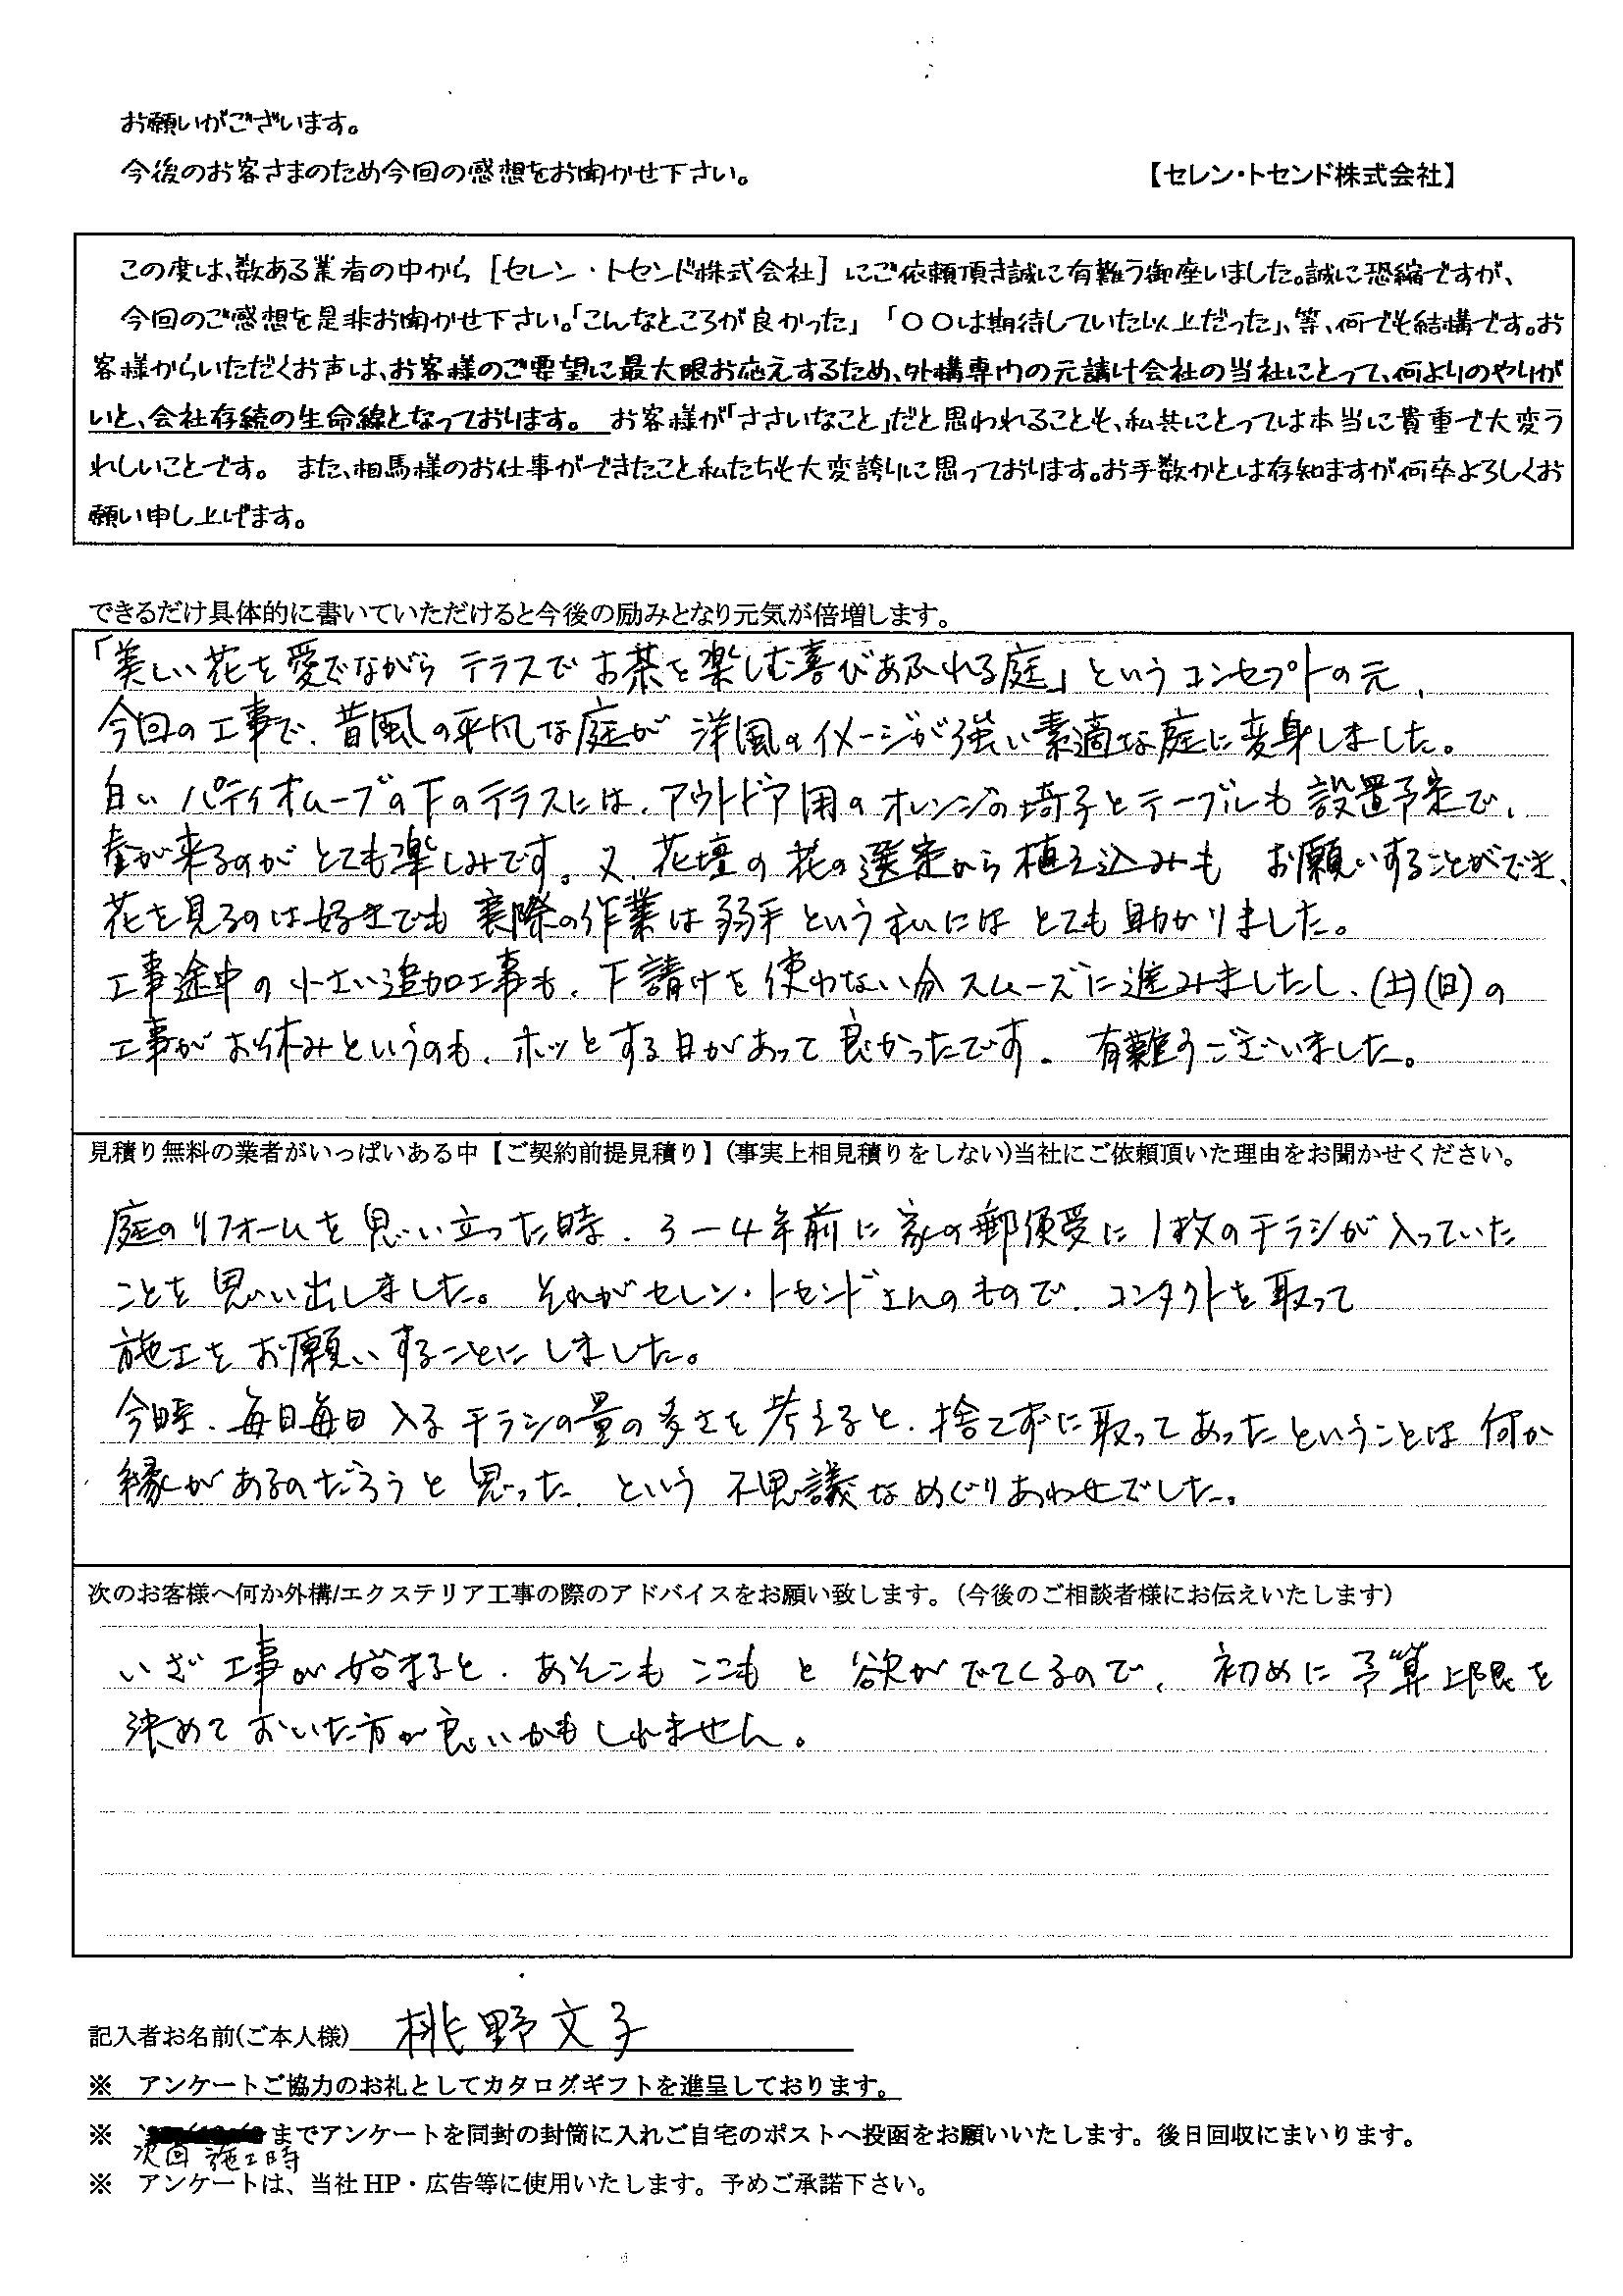 お願いがございます。
今後のお客さまのため今回の感想をお聞かせ下さい。
【セレン・トセンド株式会社】
この度は、数ある業者の中から［セレン・トセンド株式会社］にご依頼頂き誠に有難う御座いました。誠に恐縮ですが、
今回のご感想を是非お聞かせ下さい。「こんなところが良かった」「〇〇は期待していた以上だった」、等、何でも結構です。お
客様からいただくお声は、お客様のご要望に最大限お応えするため、外構専門の元請け会社の当社にとって、何よりのやりが
いと、会社存続の生命線となっております。 お客様が「ささいなこと」だと思われることも、私共にとっては本当に貴重で大変う
れしいことです。 また、相馬様のお仕事ができたこと私たちも大変誇りに思っております。お手数かとは存知ますが何卒よろしくお
願い申し上げます。
できるだけ具体的に書いていただけると今後の励みとなり元気が倍増します。
「美しい花を愛でながら テラスで お茶を楽しむ喜びあふれる庭」という コンセプトの元、
今回の工事で、昔風の平凡な庭が 洋風のイメージが強い素適な庭に変身しました。
白い パティオムーブの下のテラスには、アウトドア用の オレンジの椅子とテーブルも 設置予定で、
春が来るのが とても楽しみです。又、花壇の 花の選定から植え込みも お願いすることができ、
花を見るのは好きでも 実際の作業は 弱手 という私には とても助かりました。
工事途中の 小さい追加工事も、下請けを使わない分 スムーズに進みましたし、(土)(日)の
工事がお休みというのも、ホッとする日があって 良かったです。 有難うございました。
見積り無料の業者がいっぱいある中【ご契約前提見積り】(事実上相見積りをしない)当社にご依頼頂いた理由をお聞かせください。
庭のリフォームを 思い立った時、3－4年前に 家の郵便受に 1枚のチラシが入っていた
ことを 思い出しました。 それがセレン・トセンドさんのもので、コンタクトを取って
施工を お願いすることにしました。
今時、毎日毎日 入る チラシの量の多さを 考えると、捨てずに取ってあったということは 何か
縁があるのだろうと 思った、という 不思議なめぐりあわせでした。
次のお客様へ何か外構/エクステリア工事の際のアドバイスをお願い致します。（今後のご相談者様にお伝えいたします）
いざ 工事が始まると、あそこも ここも と 欲が でてくるので、 初めに 予算上限を
決めて おいた方が良いかもしれません。
記入者お名前(ご本人様) 桃野文子
※ アンケートご協力のお礼としてカタログギフトを進呈しております。
※ までアンケートを同封の封筒に入れご自宅のポストへ投函をお願いいたします。後日回収にまいります。
次回 施工時
※ アンケートは、当社HP・広告等に使用いたします。予めご承諾下さい。